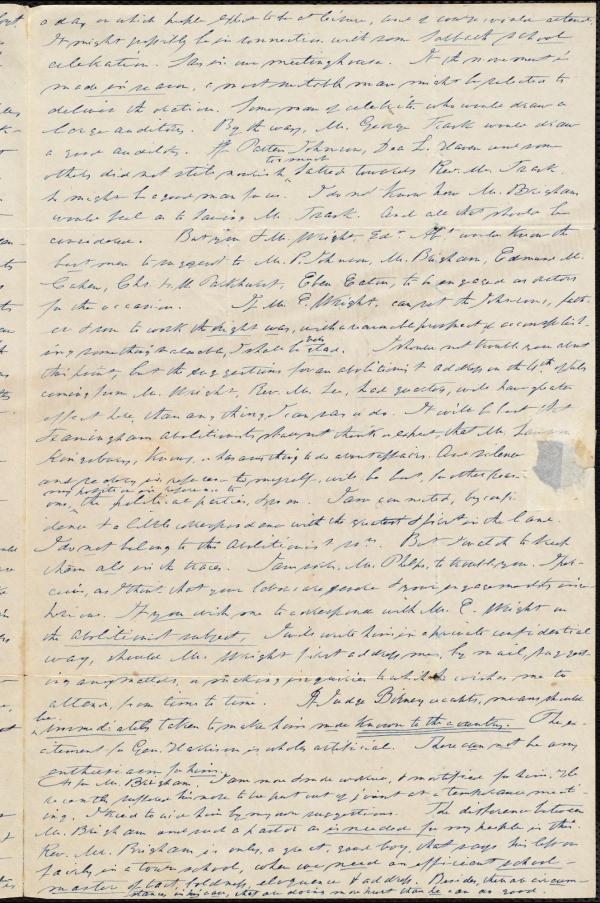 a day on which people expect to be at leisure, and of course would attend.
It might possibly be in connection with some Sabbath School
celebration. Say in our meetinghouse. If the movement is
made in season, a most suitable man might be selected to
deliver the oration. Some man of celebrity who would draw a
large auditory. By the way, Mr. George Trask would draw
a good auditory. If Patten Johnson, Dea L. Haven and some
others did not still nourish too much hatred towards Rev. Mr. Trask,
he might be a good man for us. I do not know how Mr. Brigham
would feel as to having Mr. Trask. And all this should be
considered. But you & Mr. Wright, would know the
best men to suggest to Mr. P. Johnson, Mr. Brigham, Edmund M.
Capen, Chs. F. W. Parkhurst, Eben Eaton, to be engaged as actors
for the occasion. If Mr. E. Wright, can set the Johnsons, fath-
er & son to work the right way, with a reasonable prospect of accomplish-
ing something valuable, I shall be very glad. I should not trouble you about
this point, but the suggestions for an abolitionist address on the 4th of July
coming from Mr. Wright, Rev. Mr. Lee, had quarters, will have greater
effect here, than any thing I can say or do. It will be best that
Framingham abolitionists should not think or expect, that Mr.
Kingsbury, knows, or has anything to do about affairs. And silence
and in reference to myself, will be best, for other reas-
ons, my position in reference to the political parties, & so on. I am connected, by confi-
dence & a little correspondence with the greatest spirits in the land.
I do not belong to the Abolitionist But I watch to keep
them all in the traces. I am sick, Mr. Phelps, to trouble you. I per-
ceive, as I think that your labors are severe & your engagements are
If you wish me to correspond with Mr. E. Wright on
the abolitionist subject, I will write him in a private confidential
way, should Mr. Wright first address me, by mail, suggest-
ing any matters, or making inquiries to which he wishes me to
attend, from time to time. If Judge Birney accepts, means should
be immediately taken to make him more known to the country. The ex-
citement for Gen. Harrison is wholly artificial. There can not be any
enthusiasm for him.
As for Mr. Brigham, I am more & more & mortified for him. He
recently suffered his nose to be put out of joint at a temperance meet-
ing. I tried to aid him by my own suggestions. The difference between
Mr. Brigham and such a pastor as is needed for my people is this
Rev. Mr. Brigham is only a great, good boy, that says his lesson
fairly in a town school, when we need an efficient school-
master of tact, boldness, eloquence & address. Besides, there are circum-
stances in his case, that are doing more hurt than he can do good.